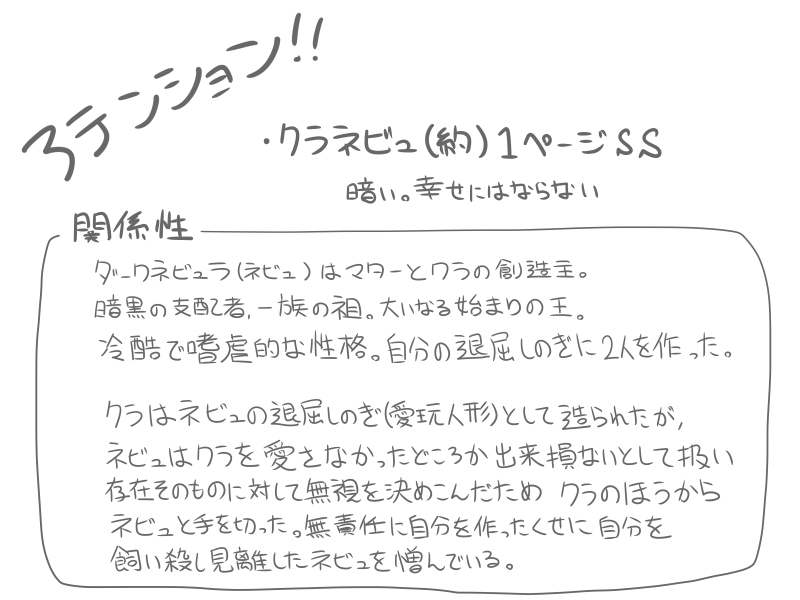 アテンション!!
・クラネビュ(約)1ページSS
暗い。幸せにはならない
関係性
ダークネビュラ(ネビュ)はマターとクラの創造主。
暗黒の支配者,一族の祖。大いなる始まりの王。
冷酷で嗜虐的な性格。自分の退屈しのぎに2人を作った。
クラはネビュの退屈しのぎ(愛玩人形)として造られたが,
ネビュはクラを愛さなかったどころか出来損ないとして扱い
存在そのものに対して無視を決めこんだため クラのほうから
ネビュと手を切った。無責任に自分を作ったくせに自分を
飼い殺し見離したネビュを憎んでいる。